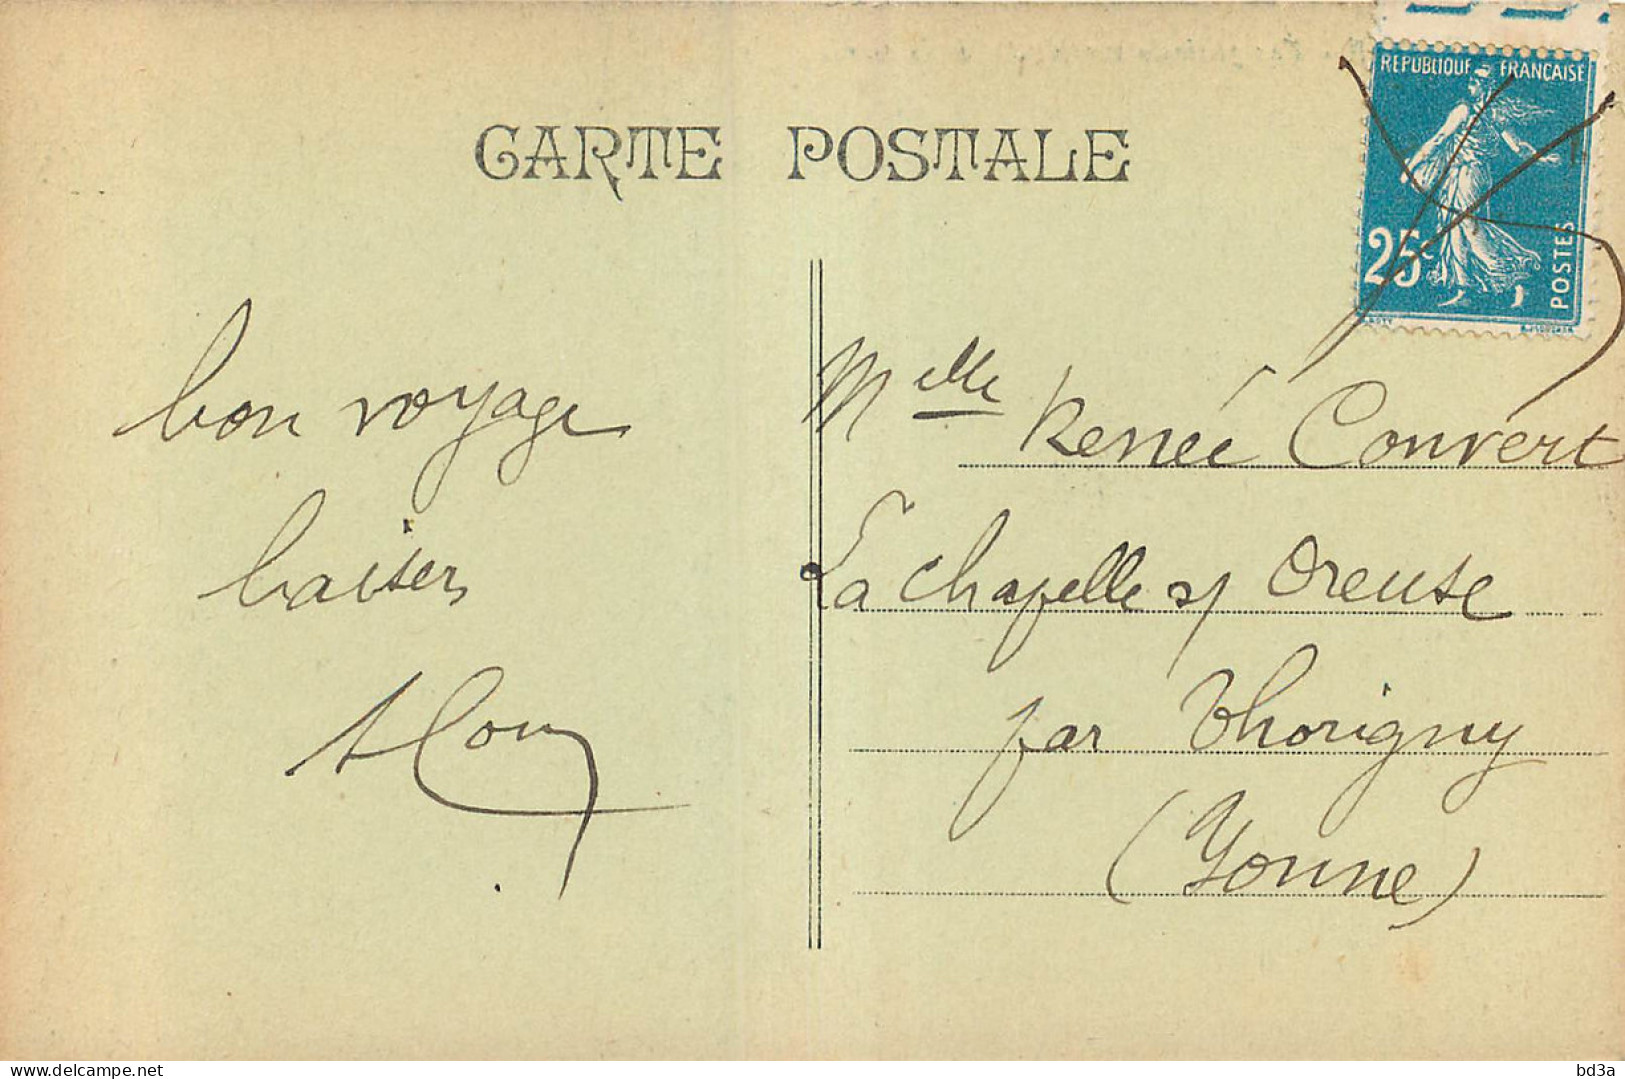 CARTE POSTALE
REPUBLIQUE FRANÇAISE
25c
POSTES
bon voyage
baisers
Melle Renée Convert
La Chapelle s/ Oreuse
par Thorigny
(Yonne)
www.delcampe.net
bd3a